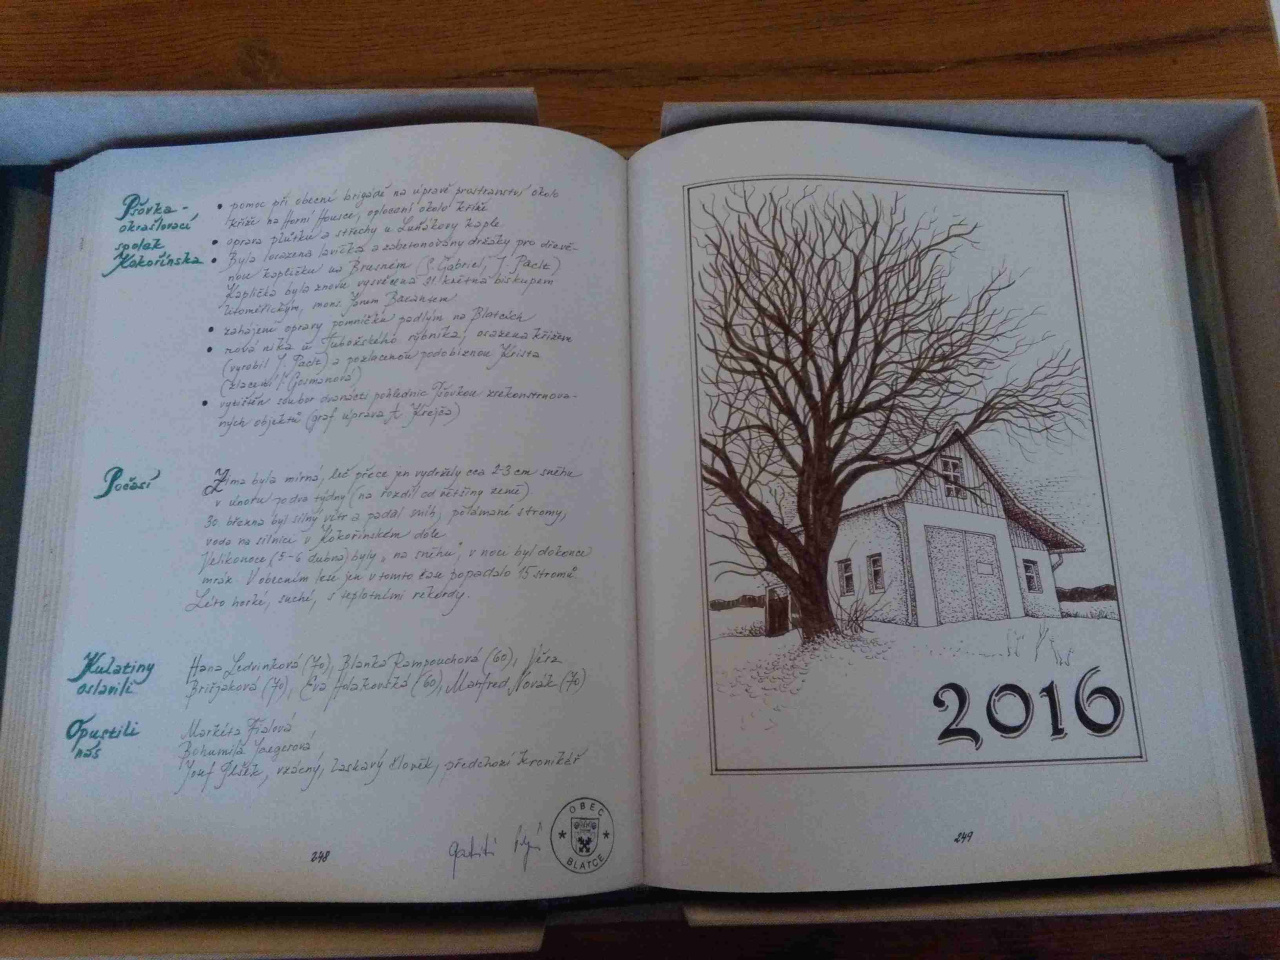 Pšovka -
okrašlovací
spolek
Kokořínska
• pomoc při obecní brigádě na úpravě prostranství okolo
kříže na Horní Housce, oplocení okolo kříže
• oprava plůtku a střechy u Luňákovy kaple
• Byla osazena lavička a zabetonovány držáky pro dřevě-
nou kapličku na Brusném (Š. Gabriel, J. Paclt)
Kaplička byla znovu vysvěcena 31. května biskupem
litoměřickým, mons. Janem Baxantem
• zahájeny opravy pomníčku padlým na Blatcích
• nová nika u rybníka, osazena křížem
(vyrobil J. Paclt) a pozlacenou podobiznou Krista
(zlacení)
• vytištěn soubor dvanácti pohlednic Pšovkou zrekonstruova-
ných objektů (graf. úprava A. Krejča)
Počasí
Zima byla mírná, leč přece jen vydržely cca 2-3 cm sněhu
v únoru po dva týdny (na rozdíl od většiny země).
30. března byl silný vítr a padal sníh, polámané stromy,
voda na silnici v Kokořínském dole.
Velikonoce (5-6 dubna) byly „na sněhu“, v noci byl dokonce
mráz. V obecním lese jen v tomto čase popadalo 15 stromů.
Léto horké, suché, s teplotními rekordy.
Kulatiny
oslavili
Hana Ledvinková (70), Blanka Rampouchová (60), Věra
(70), Eva (60), Manfred Novák (70)
Opustili
nás
Markéta Fialová
Bohumila Jaegerová
Josef Plšek, vzácný, laskavý člověk, předchozí kronikář
OBEC
BLATCE
248
2016
249